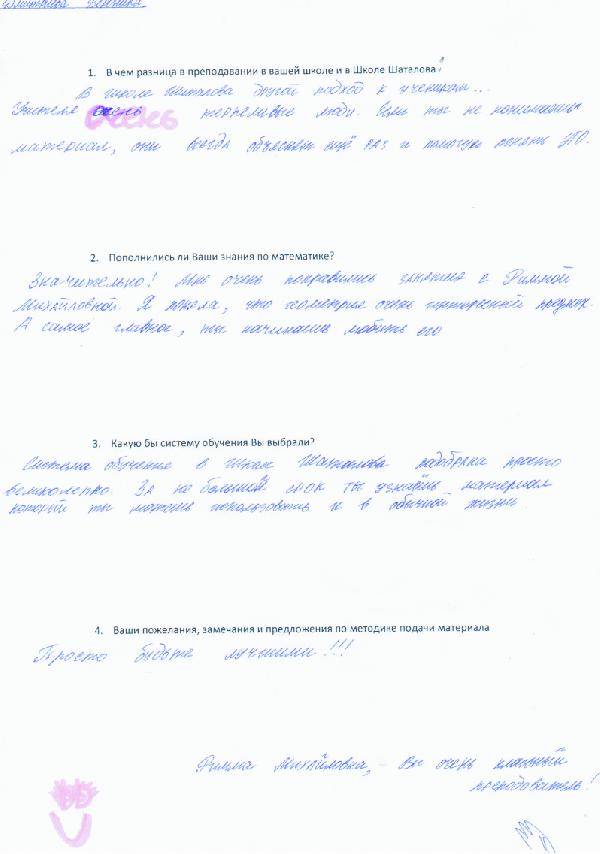 1. В чем разница в преподавании в вашей школе и в Школе Шаталова?
В школе Шаталова другой подход к ученикам...
Учителя очень терпеливые люди. Если ты не понимаешь
очень
материал, они всегда объяснят ещё раз и помогут понять это.
2. Пополнились ли Ваши знания по математике?
Значительно! Мне очень понравились занятия с Риммой
Михайловной. Я поняла, что геометрия очень предмет.
А самое главное, ты начинаешь любить его
3. Какую бы систему обучения Вы выбрали?
Система обучения в Школе Шаталова подобрана просто
великолепно. За не большой срок ты узнаёшь материал
который ты можешь использовать и в обычной жизни.
4. Ваши пожелания, замечания и предложения по методике подачи материала
Просто будьте лучшими!!!
Римма Михайловна, Вы очень классный
преподаватель!